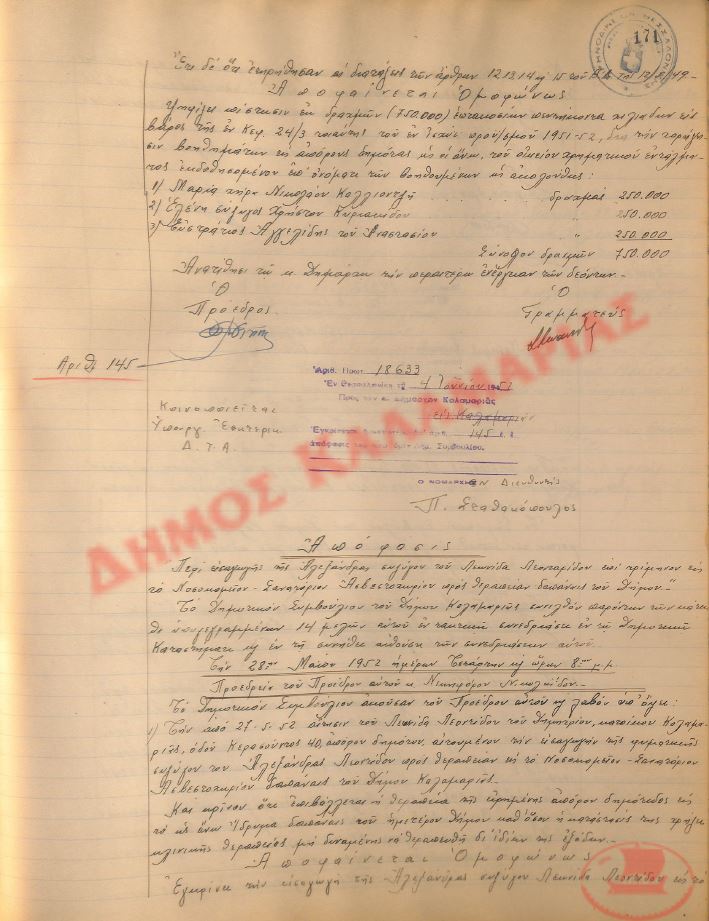 171
Ἔτι δὲ ὅτι ἐτηρήθησαν αἱ διατάξεις τῶν ἄρθρων 12, 13, 14 καὶ 15 τοῦ
Ἀποφαίνεται Ὁμοφώνως
Ψηφίζει πίστωσιν ἐκ δραχμῶν (750.000) ἑπτακοσίων πεντήκοντα χιλιάδων εἰς
βάρος τῆς ἐν Κεφ. 24/3 τοῦ ἐν ἰσχύϊ προϋ/σμοῦ 1951-52, διὰ τὴν
βοηθημάτων εἰς ἀπόρους δημότας ὡς οἱ ἄνω, τοῦ οἰκείου χρηματικοῦ ἐντάλμα-
τος ἐκδοθησομένου ἐπ' ὀνόματι τῶν βοηθουμένων ὡς ἀκολούθως:
1) Μαρία χήρα Νικολάου Καλλιοντζῆ δραχμὰς 250.000
2) Ἑλένη σύζυγος Χρήστου Κυριακίδου " 250.000
3) Εὐστράτιος Ἀγγελίδης τοῦ Ἀναστασίου " 250.000
Σύνολον δραχμῶν 750.000
Ἀνατίθησι τῷ κ. Δημάρχῳ τὴν περαιτέρω ἐνέργειαν τῶν δεόντων.-
Ὁ Ὁ
Πρόεδρος Γραμματεύς
Ἀριθ. 145
Ἀριθ. Πρωτ. 18633
Ἐν Θεσσαλονίκῃ τῇ 4 Ἰουνίου 1952
Πρὸς τὸν κ. Δήμαρχον Καλαμαριᾶς
εἰς Καλαμαριὰν
Ἐγκρίνεται ἡ ὑπ' ἀριθ. 145 ἐ. ἔ.
ἀπόφασις τοῦ Δημ. Συμβουλίου.
Ὁ ΝΟΜΑΡΧΗΣ
Διευθυντὴς
Π. Σταθακόπουλος
Κοινοποιεῖται
Ὑπουργ. Ἐσωτερικ.
Δ.Τ.Α.
ΔΗΜΟΣ ΚΑΛΑΜΑΡΙΑΣ
Ἀπόφασις
Περὶ εἰσαγωγῆς τῆς Ἀλεξάνδρας συζύγου τοῦ Λεωνίδα Λεονταρίδου ἐπὶ τρίμηνον εἰς
τὸ Νοσοκομεῖον-Σανατόριον Ἀσβεστοχωρίου πρὸς θεραπείαν δαπάναις τοῦ Δήμου.-
Τὸ Δημοτικὸν Συμβούλιον τοῦ Δήμου Καλαμαριᾶς συνελθὸν παρόντων τῶν κάτω-
θι ὑπογεγραμμένων 14 μελῶν αὐτοῦ ἐν τακτικῇ συνεδριάσει ἐν τῷ Δημοτικῷ
Καταστήματι καὶ ἐν τῇ συνήθει αἰθούσῃ τῶν συνεδριάσεων αὐτοῦ.
Τὴν 28ην Μαΐου 1952 ἡμέραν Τετάρτην καὶ ὥραν 8ην μ.μ.
Προεδρείᾳ τοῦ Προέδρου αὐτοῦ κ. Νικηφόρου Νικολαΐδου.-
Τὸ Δημοτικὸν Συμβούλιον ἀκοῦσαν τοῦ Προέδρου αὐτοῦ καὶ λαβὸν ὑπ' ὄψει:
1) Τὴν ἀπὸ 27-5-52 αἴτησιν τοῦ Λεωνίδα Λεοντίδου τοῦ Δημητρίου, κατοίκου Καλαμα-
ριᾶς, ὁδοῦ Κερασοῦντος 40, ἀπόρου δημότου, αἰτουμένου τὴν εἰσαγωγὴν τῆς φυματικῆς
συζύγου του Ἀλεξάνδρας Λεοντίδου πρὸς θεραπείαν εἰς τὸ Νοσοκομεῖον-Σανατόριον
Ἀσβεστοχωρίου δαπάναις τοῦ Δήμου Καλαμαριᾶς.
Καὶ κρῖνον ὅτι ἐπιβάλλεται ἡ θεραπεία τῆς εἰρημένης ἀπόρου δημότιδος εἰς
τὸ ὡς ἄνω Ἵδρυμα δαπάναις τοῦ ἡμετέρου Δήμου καθ' ὅσον ἡ κατάστασίς της χρήζει
κλινικῆς θεραπείας μὴ δυναμένης νὰ θεραπευθῇ δι' ἰδίων της ἐξόδων.-
Ἀποφαίνεται Ὁμοφώνως
Ἐγκρίνει τὴν εἰσαγωγὴν τῆς Ἀλεξάνδρας συζύγου Λεωνίδα Λεοντίδου εἰς τὸ